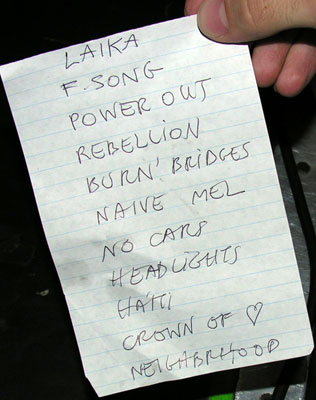 LAIKA
F. SONG
POWER OUT
REBELLION
BURN! BRIDGES
NAIVE MEL
NO CARS
HEADLIGHTS
HAITI
CROWN OF ♡
NEIGHBRHOOD